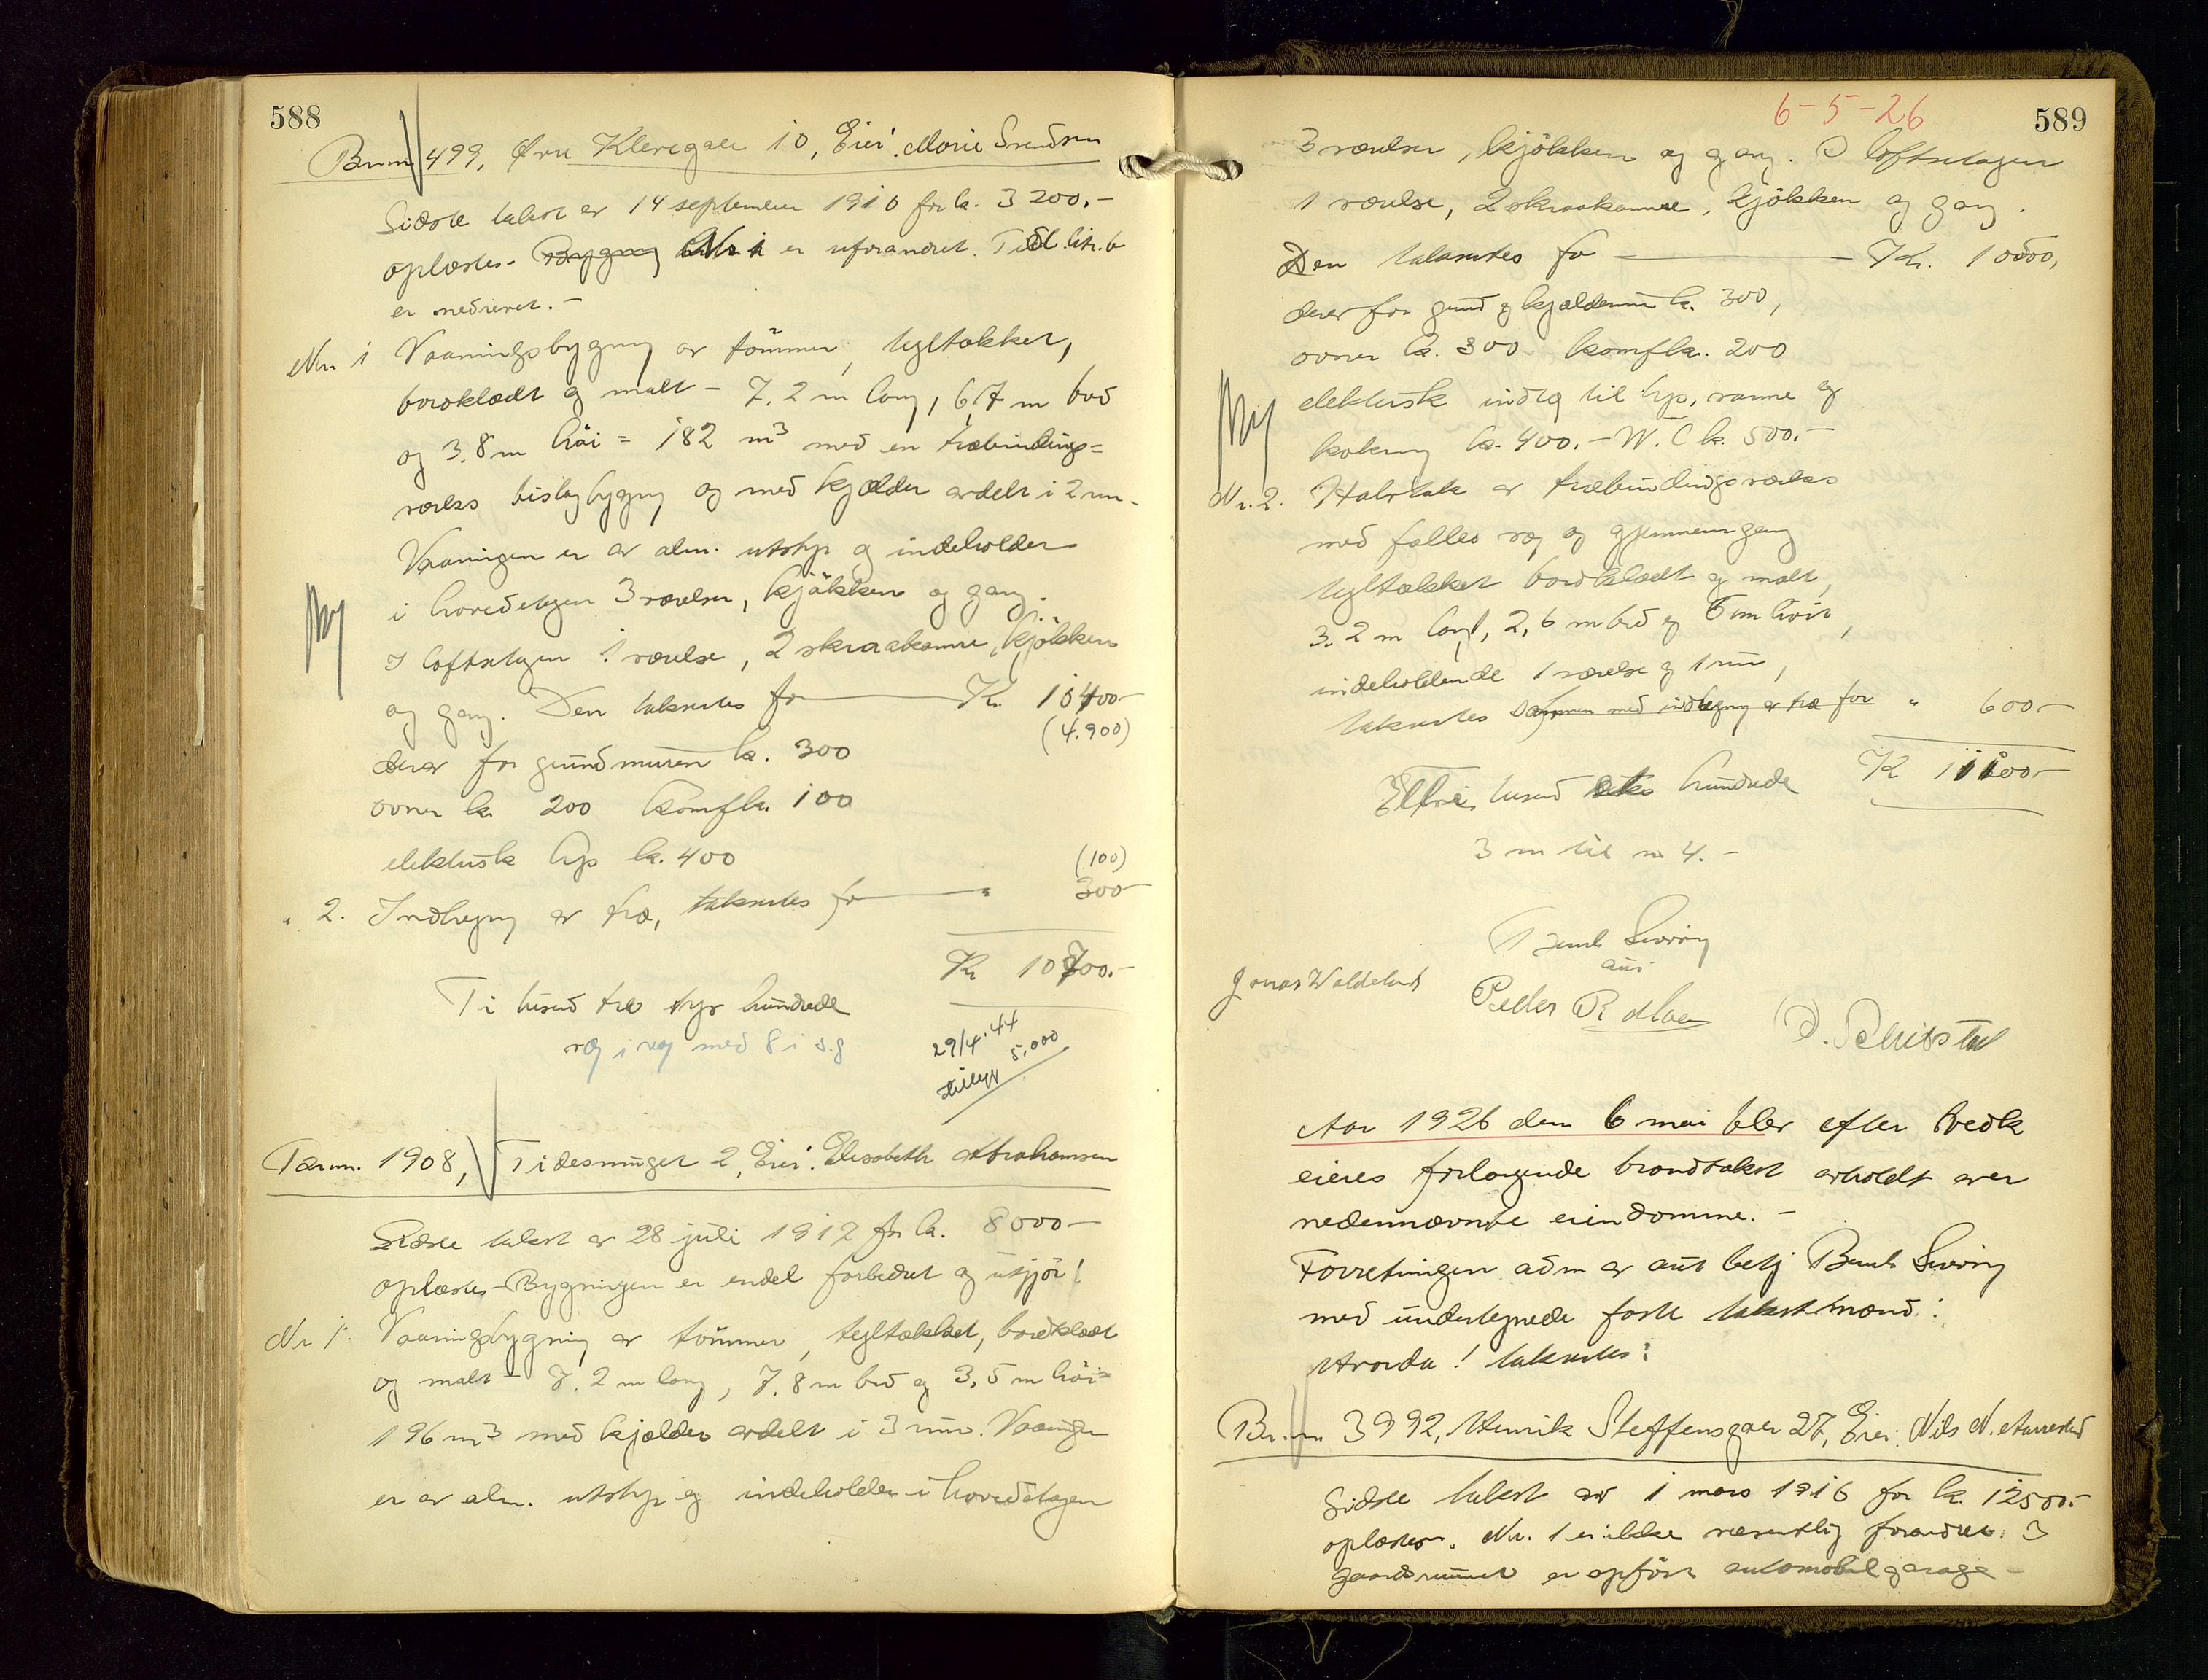 588
Brnr. 499, Øvre Klevegate 10, Eier: Marie Svendsen
Sidste takst av 14 september 1910 for kr. 3200.-
oplæstes. Bygning Nr 1 er uforandret. Tidl. litr. b
er nedrevet. -
Nr. 1 Vaaningsbygning av tømmer, tegltækket,
bordklædt og malt - 7,2 m lang, 6,7 m bred
og 3.8 m høi = 182 m³ med en træbindings=
værks bislagbygning og med kjælder avdelt i 2 rum.
Vaaningen er av alm. utstyr og indeholder
i hovedetagen 3 værelser, kjøkken og gang.
I loftsetagen 1 værelse, 2 skraakamre, kjøkken
og gang. Den takseres for Kr. 10400-
(4.900)
derav for grundmuren kr. 300
ovner kr. 200 komf kr. 100
elektrisk lys kr. 400
(100)
" 2. Indhegning av træ, takseres for " 300-
Kr 10700.-
Ti tusend syv hundrede
væg i væg med 8 i s.g
29/4.44
tillegg 5.000
Tarnr. 1908, Tidesmuget 2, Eier: Elisabeth Abrahamsen
Sidste takst av 28 juli 1917 for kr. 8000-
oplæstes - Bygningen er endel forbedret og utgjør:
Nr 1. Vaaningsbygning av tømmer, tegltækket, bordklædt
og malt - 7,2 m lang, 7,8 m bred og 3,5 m høi =
196 m³ med kjælder avdelt i 3 rum. Vaaningen
er av alm. utstyr og indeholder i hovedetagen
6-5-26
589
3 værelser, kjøkken og gang. I loftsetagen
1 værelse, 2 skraakamre, kjøkken og gang.
Den takseres for Kr. 10500,
derav for grund og kjældermur kr. 300,
ovner kr. 300 komf kr. 200
elektrisk indlæg til lys, varme og
kokning kr. 400.- W.C kr. 500.-
Nr. 2. Halvtak av træbindingsværk
med fælles væg og gjennemgang
tegltækket bordklædt og malt,
3.2 m lang, 2,6 m bred og m høit,
indeholdende 1 værelse og 1 rum,
takseres sammen med indhegning av træ for " 600-
Kr 11100-
Elleve tusend et hundrede
3 m til nr 4. -
Bernh Sivering
aut
Jonas Waldeland
Peder R. Moen
Aar 1926 den 6 mai blev efter vedk
eieres forlangende brandtakst avholdt over
nedennævnte eiendomme. -
Forretningen adm av aut betj Bernh Sivering
med undertegnede faste takstmænd:
Hvorda! takseres:
Br.nr 3992, Henrik Steffensgate 27, Eier: Nils N. Aarrestad
Sidste takst av 1 mars 1916 for kr. 12500.-
oplæstes. Nr. 1 er ikke væsentlig forandret. I
gaardsrummet er opført automobilgarage -